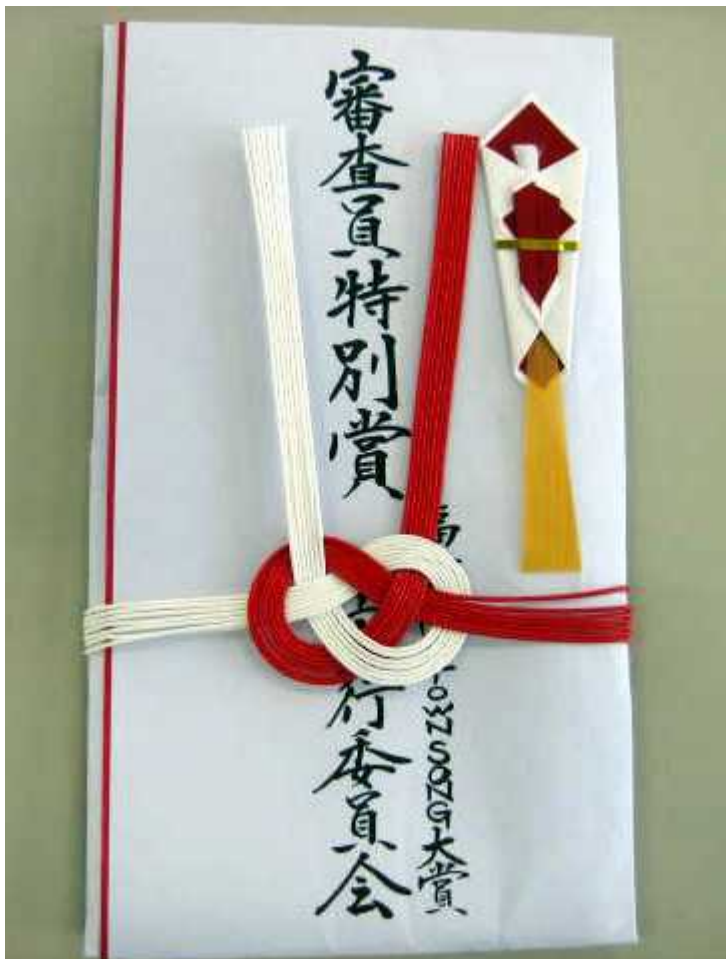 審査員特別賞
福 TOWN SONG大賞
行委員会